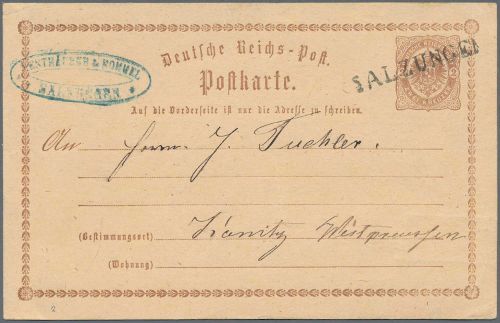 & ROMMEL
SALZUNGEN
Deutsche Reichs-Post.
Postkarte.
SALZUNGEN
Auf die Vorderseite ist nur die Adresse zu schreiben.
An Herrn J. Tuchler.
(Bestimmungsort) Konitz Westpreussen
(Wohnung)
2